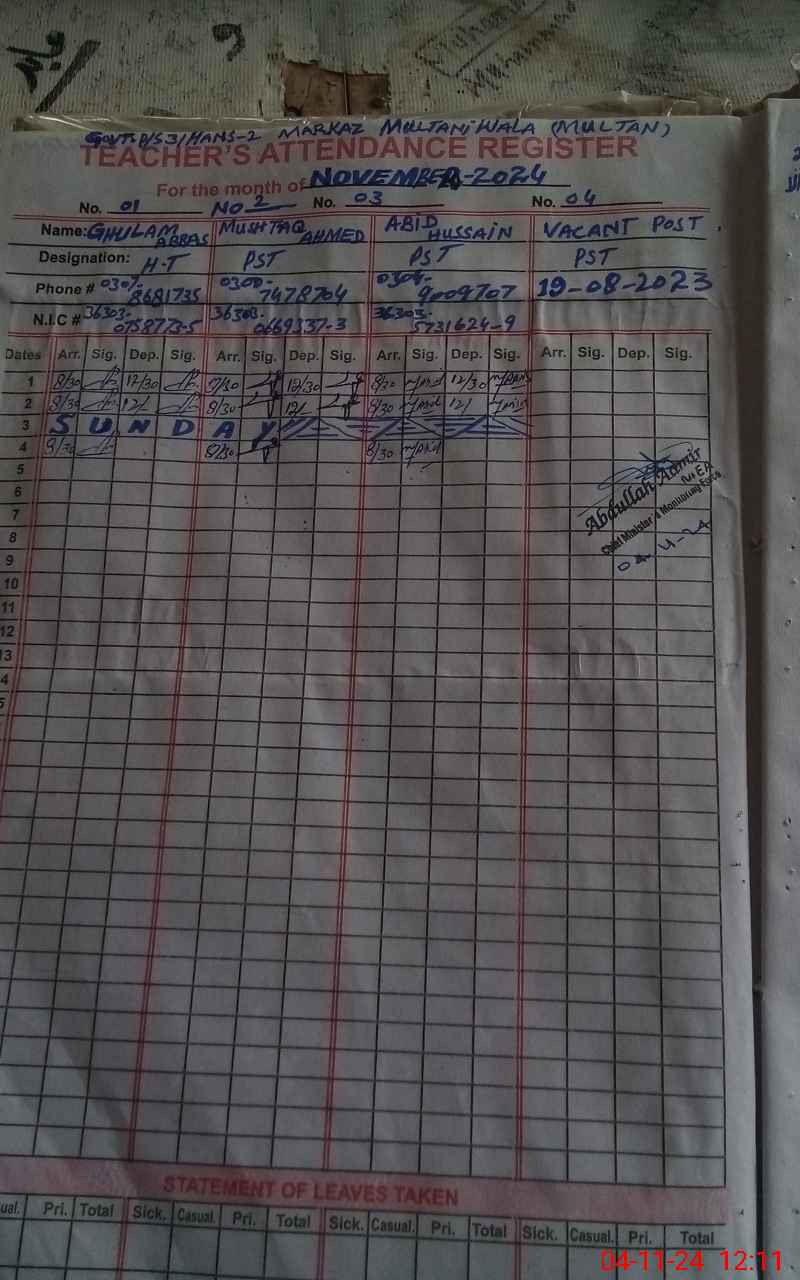 Muhammad
GOVT. P/S 3/HANS-2 MARKAZ MULTANIWALA (MULTAN)
TEACHER'S ATTENDANCE REGISTER
For the month of NOVEMBER-2024
No. 01 No 2 No. 03 No. 04
Name: GHULAM ABBAS MUSHTAQ AHMED ABID HUSSAIN VACANT POST
Designation: H-T PST PST PST
Phone # 0307-8681735 0300-7478704 0304-9009707 19-08-2023
N.I.C # 36303-0758773-5 36303-0669337-3 36303-5731624-9
Dates Arr. Sig. Dep. Sig. Arr. Sig. Dep. Sig. Arr. Sig. Dep. Sig. Arr. Sig. Dep. Sig.
1 8/30 12/30 8/30 12/30 8/30 12/30
2 8/30 12/ 8/30 12/ 8/30 12/
3 SUNDAY
4 8/30 8/30 8/30
5
6
7
8
9
10
11
12
13
4
5
Abdullah Aamir
MEA
Chief Minister's Monitoring Force
04-11-24
STATEMENT OF LEAVES TAKEN
ual. Pri. Total Sick. Casual. Pri. Total Sick. Casual. Pri. Total Sick. Casual. Pri. Total
04-11-24 12:11